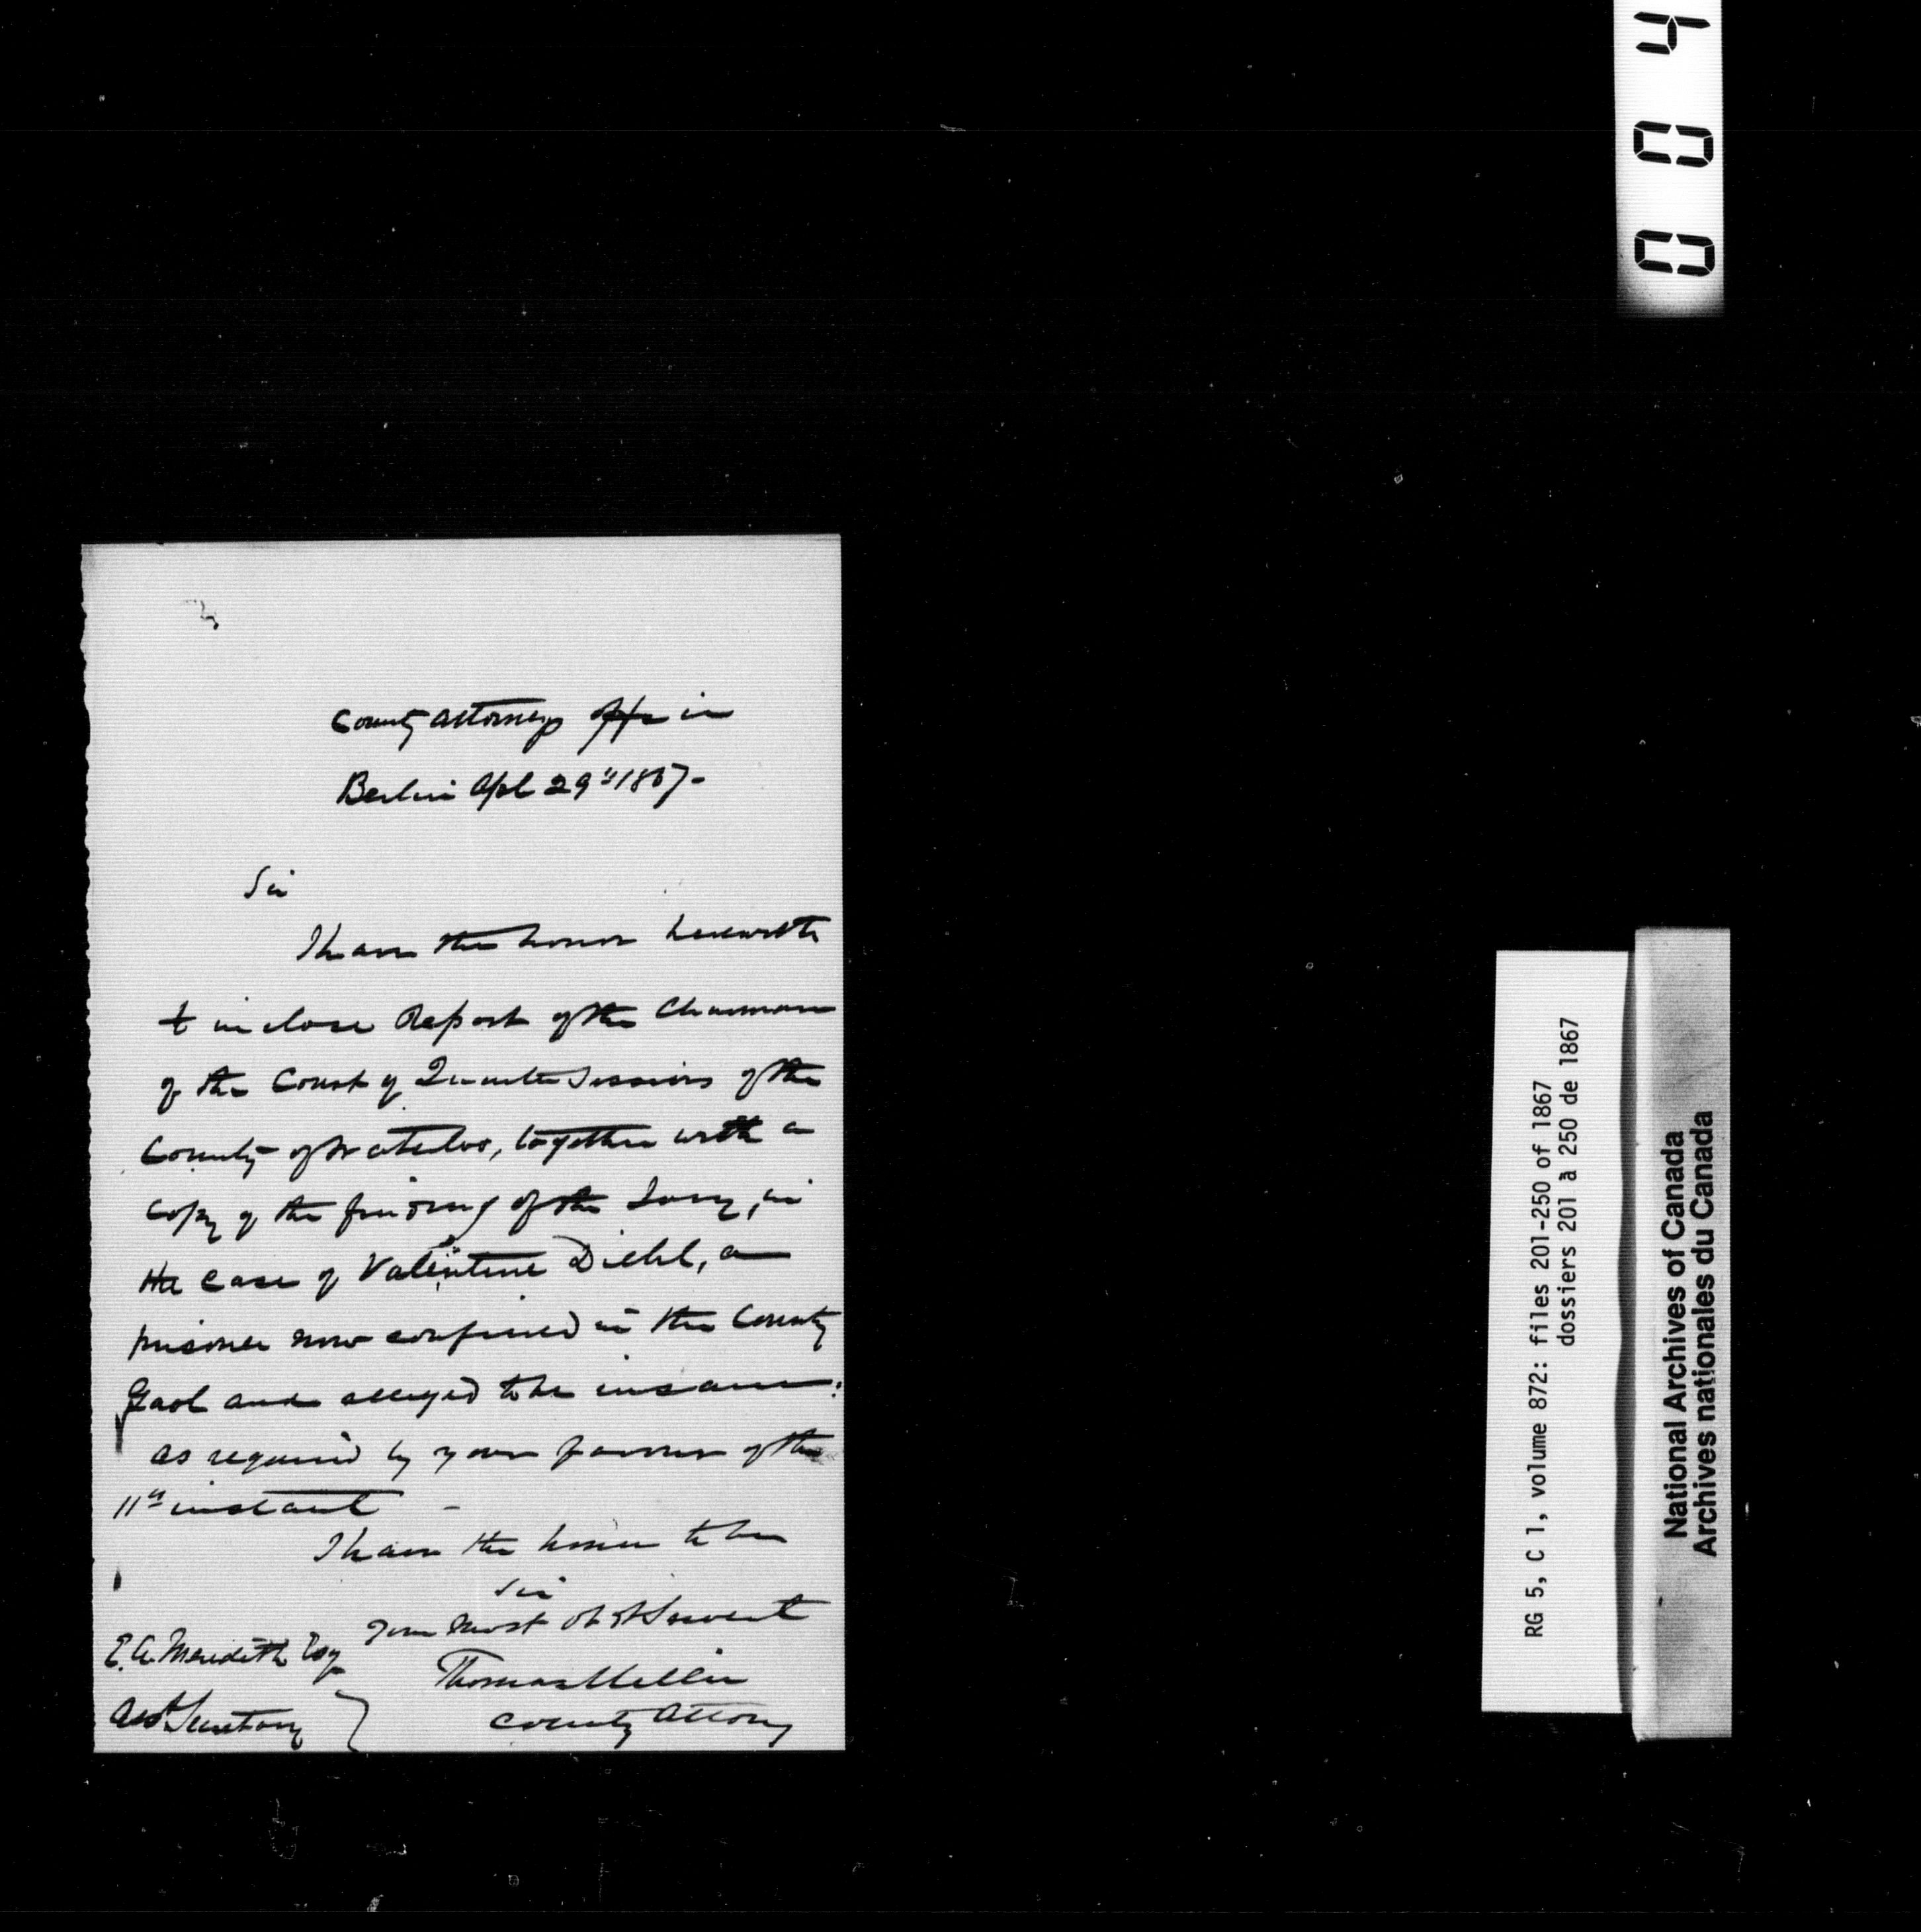 County Attorneys Office
Berlin Apl 29th 1867-
Sir
I have the honor herewith
to inclose Report of the Chairman
of the Court of Quarter Sessions of the
County of Waterloo, together with a
Copy of the finding of the Jury, in
the case of Valentine Diehl, a
prisoner now confined in the County
Gaol and alleged to be insane:
as required by your favour of the
11th instant -
I have the honor to be
Sir
Your most obt Servant
Thomas Miller
County Attorney
E. A. Meredith Esq
Asst Secretary
004
RG 5, C 1, volume 872: files 201-250 of 1867
dossiers 201 à 250 de 1867
National Archives of Canada
Archives nationales du Canada